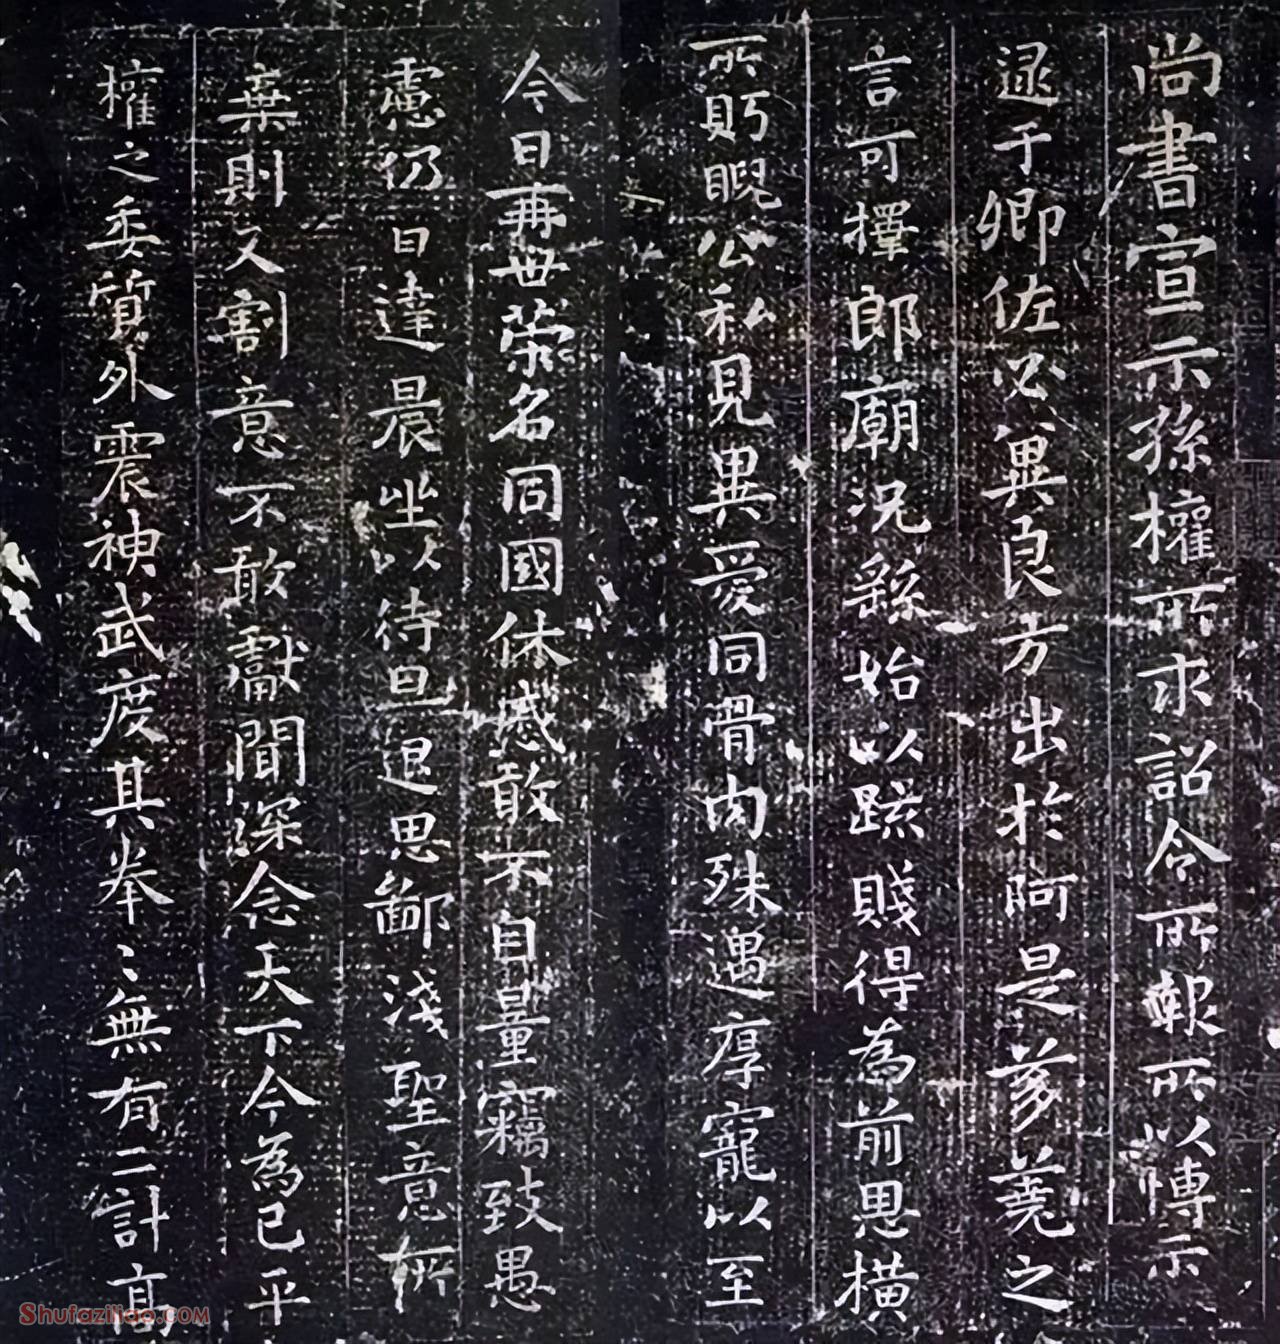 尚書宣示孫權所求詔令所報所以博示
逮于卿佐必冀良方出於阿是芻蕘之
言可擇郎廟況繇始以疏賤得為前恩橫
所盼睨公私見異愛同骨肉殊遇厚寵以至
今日再世榮名同國休慼敢不自量竊致愚
慮仍日達晨坐以待旦退思鄙淺聖意所
棄則又割意不敢獻聞深念天下今為已平
權之委質外震神武度其拳〻無有二計高
Shufaziliao.COM